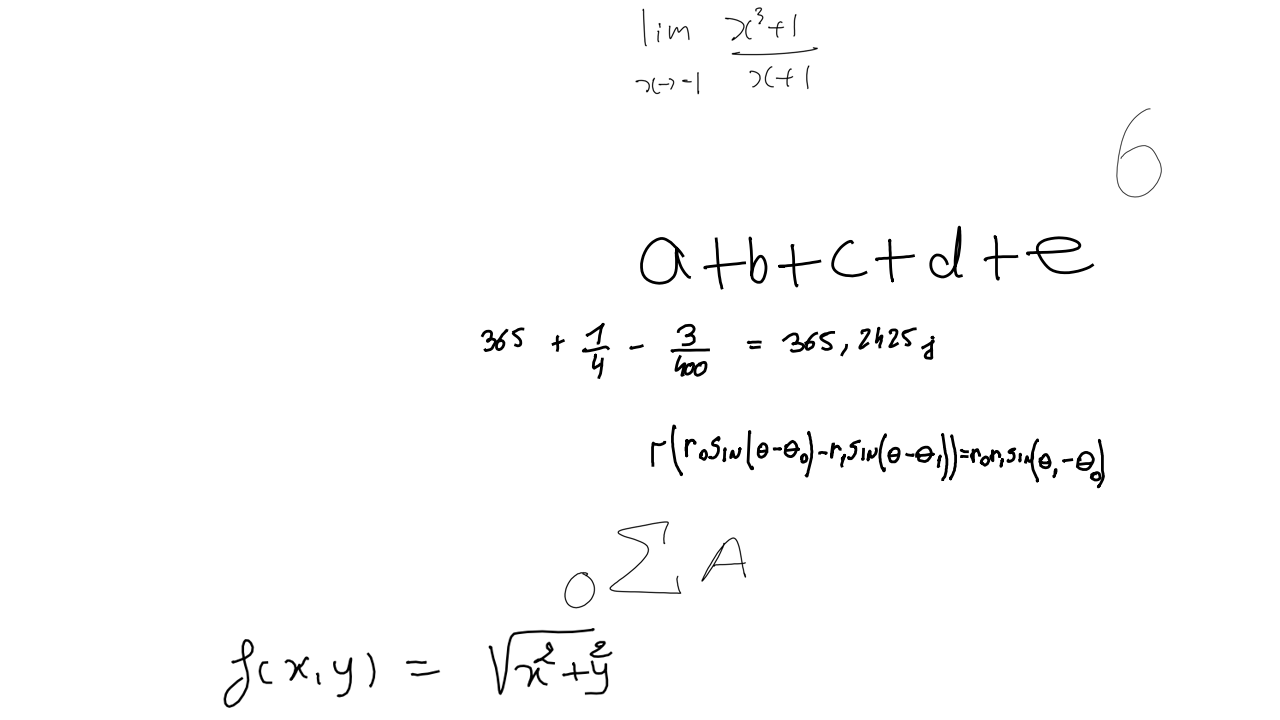 lim x→-1 (x³+1)/(x+1)
6
a+b+c+d+e
365 + 1/4 - 3/400 = 365,2425 j
r(r₀sin(θ-θ₀)-r₁sin(θ-θ₁))=r₀r₁sin(θ₁-θ₀)
₀∑A
f(x,y) = √(x²+y²)